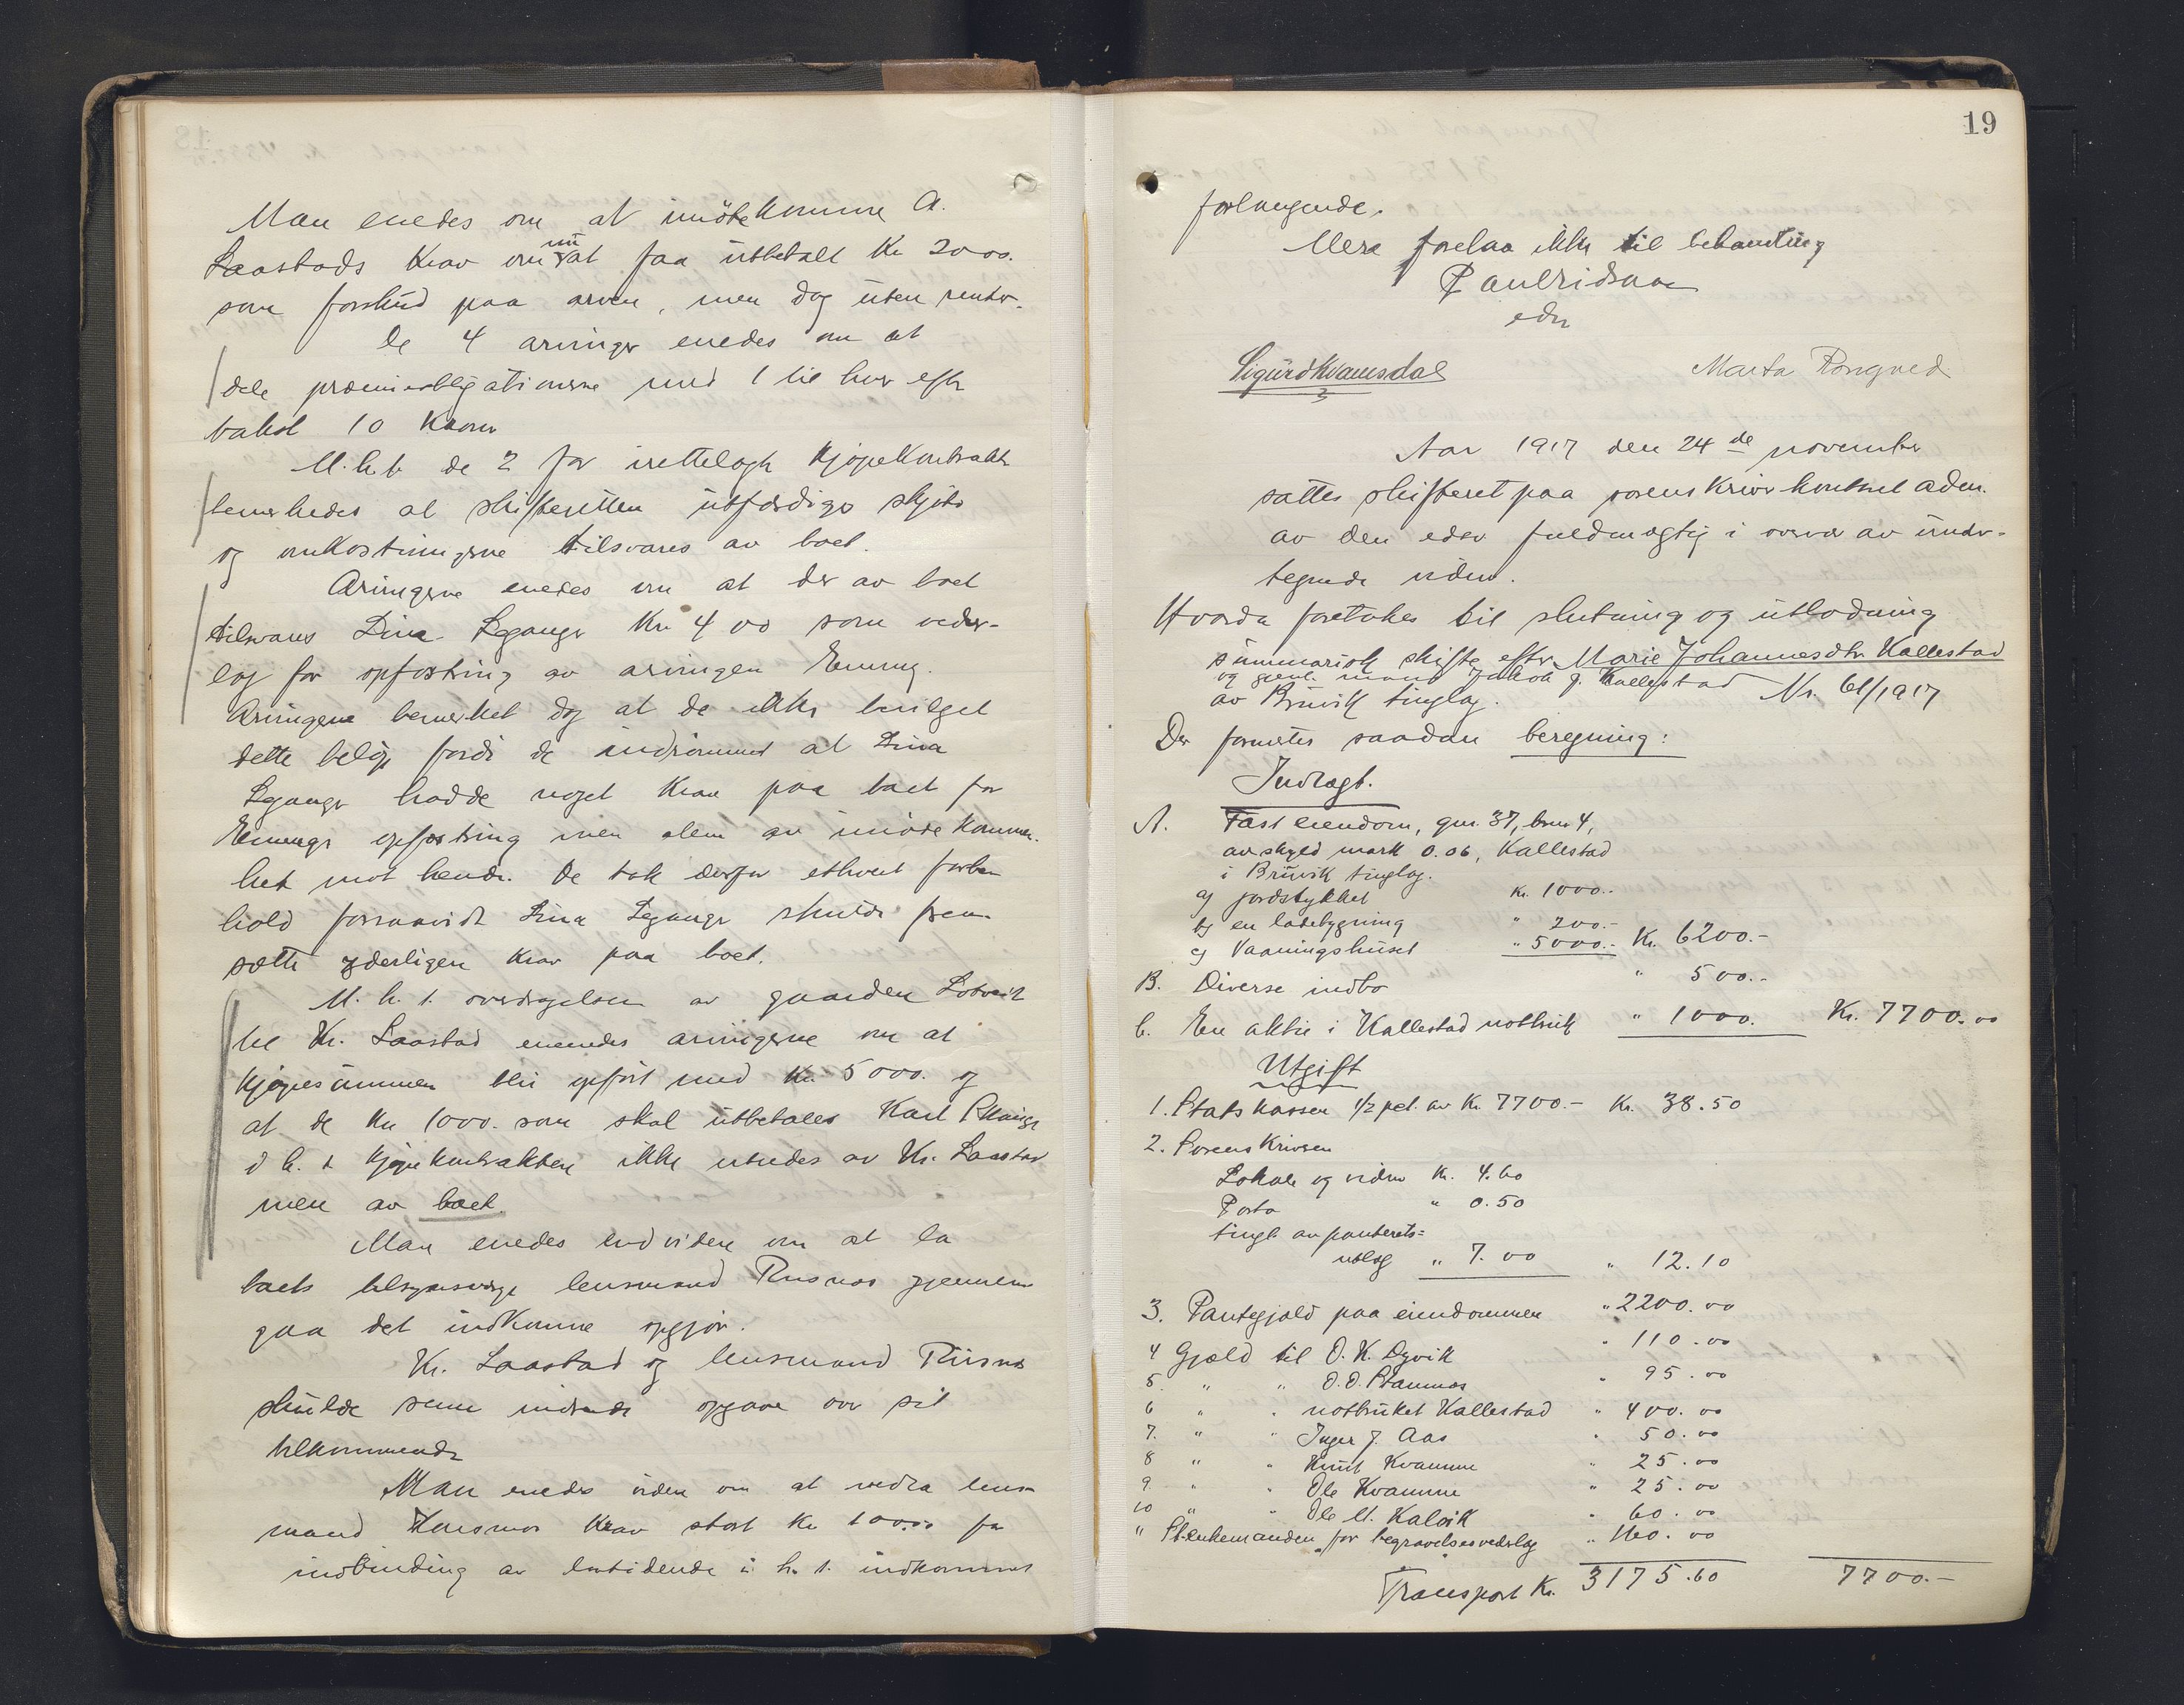 Man enedes om at imötekomme A.
Laastads krav om nu at faa utbetalt kr 2000.
som forskud paa arven, men dog uten rente.
De 4 arvinger enedes om at
dele præmieobligationerne med 1 til hver efter
takst 10 kroner
M.h.t. de 2 før irettelagte kjøpekontrakter
bemerkedes at skifteretten utfærdiger skjøte
og omkostningerne tilsvares av boet.
Arvingerne enedes om at der av boet
tilsvares Dina Leganger kr. 400 som veder-
lag for opfostring av arvingen Emmy.
Arvingerne bemerket dog at de ikke bevilget
dette beløp fordi de indrømmet at Dina
Leganger hadde noget krav paa boet for
Emmys opfostring men alene av imøtekommen-
het mot hende. De tok derfor ethvert forbe-
hold forsaavidt Dina Leganger skulde frem-
sætte yderligere krav paa boet.
M.h.t. overdragelsen av gaarden
til Kr. Laastad enedes arvingerne om at
kjøpesummen blir opført med kr. 5000. og
at de kr 1000. som skal utbetales Karl
i h. t kjøpekontrakten ikke utredes av Kr. Laastad
men av boet.
Man enedes endvidere om at la
boets tilsynsverge lensmand Risnes gjennem-
gaa det indkomne opgjør.
Kr. Laastad og lensmand Risnes
skulde senere indsende opgave over sit
tilkommende
Man enedes videre om at vedta lens-
mand Risnes krav stort kr 10.00 for
indbinding av lovtidende i h. t. indkommet
19
forlangende.
Mere forelaa ikke til behandling
Paul
edsv
Sigurd Kvamsdal Marta Rongved
Aar 1917 den 24de november
sattes skifteret paa sorenskriverkontoret aden.
av den edsv fuldmægtig i overvær av under-
tegnede vidner.
Hvorda foretokes til slutning og utlodning
summarisk skifte efter Marie Johannesdtr. Kallestad
og gjenl. mand Jakob J. Kallestad Nr. 61/1917
av Bruvik tinglag.
Der formertes saadan beregning:
Indtægt.
A. Fast eiendom, gnr. 37, bnr 4,
av skyld mark 0.06, Kallestad
i Bruvik tinglag.
a) jordstykket kr. 1000.-
b) en ladebygning " 200.-
c) Vaaningshuset " 5000.- Kr. 6200.-
B. Diverse indbo " 500.-
C. En aktie i Kallestad notbruk " 1000. Kr. 7700.00
Utgift
1. Statskassen 1/2 pct. av Kr. 7700.- Kr. 38.50
2. Sorenskriveren
Lokale og vidner Kr. 4.60
Porto " 0.50
tingl. av panterets=
utlæg " 7.00 " 12.10
3. Pantegjæld paa eiendommen " 2200.00
4 Gjæld til O. K. Dyvik " 110.00
5. " " O. O. Stamnes " 95.00
6 " " notbruket Kallestad " 400.00
7. " " Inger J. Aas " 50.00
8 " " Knut Kvamme " 25.00
9 " " Ole Kvamme " 25.00
10 " " Ole M. Kalvik " 60.00
" Enkemanden for begravelsesvederlag " 160.00
Transport Kr. 3175.60 7700.-